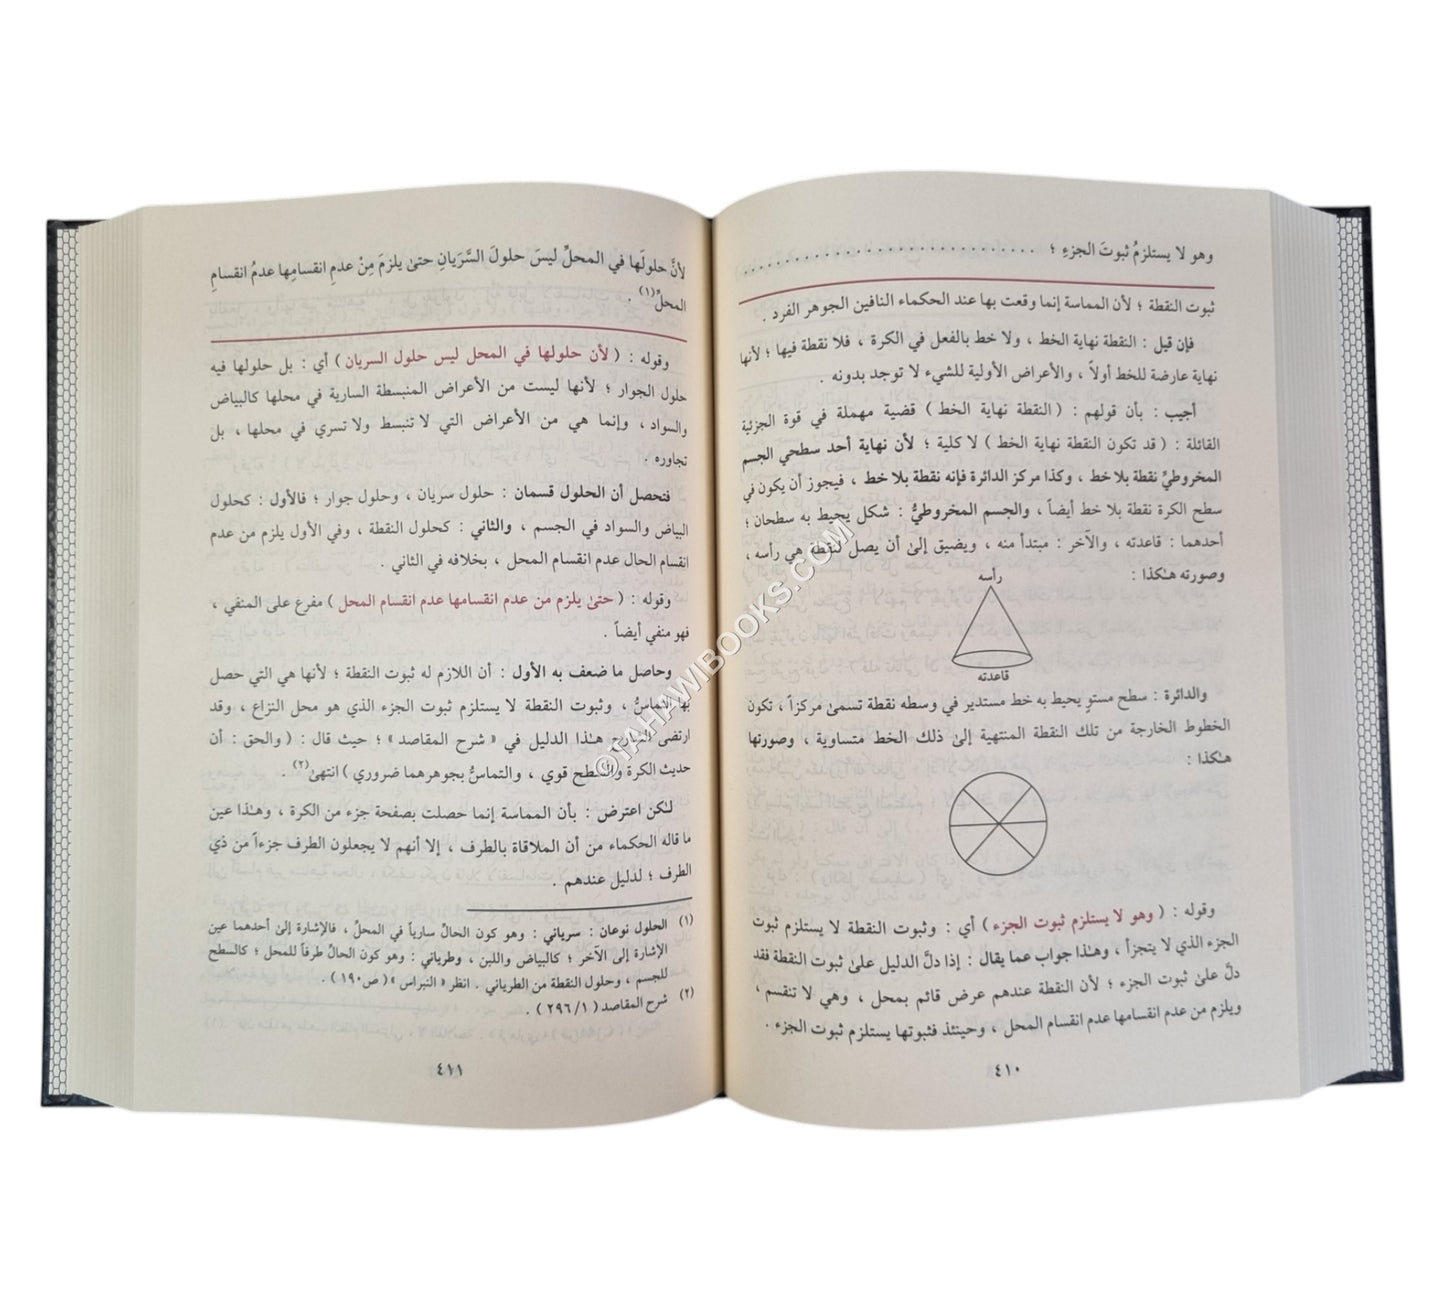 وهو لا يستلزمُ ثبوتَ الجزءِ ؛ . . . . . . . . . . . . . . . . . . . . . . . . . . . . . . . . . . .
ثبوت النقطة ؛ لأن المماسة إنما وقعت بها عند الحكماء النافين الجوهر الفرد .
فإن قيل : النقطة نهاية الخط ، ولا خط بالفعل في الكرة ، فلا نقطة فيها ؛ لأنها
نهاية عارضة للخط أولاً ، والأعراض الأولية للشيء لا توجد بدونه .
أجيب : بأن قولهم : ( النقطة نهاية الخط ) قضية مهملة في قوة الجزئية
القائلة : ( قد تكون النقطة نهاية الخط ) لا كلية ؛ لأن نهاية أحد سطحي الجسم
المخروطيِّ نقطة بلا خط ، وكذا مركز الدائرة فإنه نقطة بلا خط ، فيجوز أن يكون في
سطح الكرة نقطة بلا خط أيضاً ، والجسم المخروطيُّ : شكل يحيط به سطحان ؛
أحدهما : قاعدته ، والآخر : مبتدأ منه ، ويضيق إلىٰ أن يصل لنقطة هي رأسه ،
وصورته هـٰكذا :
رأسه
قاعدته
والدائرة : سطح مستوٍ يحيط به خط مستدير في وسطه نقطة تسمىٰ مركزاً ، تكون
الخطوط الخارجة من تلك النقطة المنتهية إلىٰ ذلك الخط متساوية ، وصورتها
هـٰكذا :
وقوله : ( وهو لا يستلزم ثبوت الجزء ) أي : وثبوت النقطة لا يستلزم ثبوت
الجزء الذي لا يتجزأ ، وهـٰذا جواب عما يقال : إذا دلَّ الدليل علىٰ ثبوت النقطة فقد
دلَّ علىٰ ثبوت الجزء ؛ لأن النقطة عندهم عرض قائم بمحل ، وهي لا تنقسم ،
ويلزم من عدم انقسامها عدم انقسام المحل ، وحينئذ فثبوتها يستلزم ثبوت الجزء .
٤١٠
لأنَّ حلولَها في المحلِّ ليسَ حلولَ السَّرَيانِ حتىٰ يلزمَ مِنْ عدمِ انقسامِها عدمُ انقسامِ
المحلِّ(١) .
وقوله : ( لأن حلولها في المحل ليس حلول السريان ) أي : بل حلولها فيه
حلول الجوار ؛ لأنها ليست من الأعراض المنبسطة السارية في محلها كالبياض
والسواد ، وإنما هي من الأعراض التي لا تنبسط ولا تسري في محلها ، بل
تجاوره .
فتحصل أن الحلول قسمان : حلول سريان ، وحلول جوار ؛ فالأول : كحلول
البياض والسواد في الجسم ، والثاني : كحلول النقطة ، وفي الأول يلزم من عدم
انقسام الحال عدم انقسام المحل ، بخلافه في الثاني .
وقوله : ( حتىٰ يلزم من عدم انقسامها عدم انقسام المحل ) مفرع على المنفي ،
فهو منفي أيضاً .
وحاصل ما ضعف به الأول : أن اللازم له ثبوت النقطة ؛ لأنها هي التي حصل
بها التماسُّ ، وثبوت النقطة لا يستلزم ثبوت الجزء الذي هو محل النزاع ، وقد
ارتضى الشارح هـٰذا الدليل في « شرح المقاصد » ؛ حيث قال : ( والحق : أن
حديث الكرة والسطح قوي ، والتماسُّ بجوهرهما ضروري ) انتهىٰ(٢) .
لـٰكن اعترض : بأن المماسة إنما حصلت بصفحة جزء من الكرة ، وهـٰذا عين
ما قاله الحكماء من أن الملاقاة بالطرف ، إلا أنهم لا يجعلون الطرف جزءاً من ذي
الطرف ؛ لدليل عندهم .
(١) الحلول نوعان : سرياني : وهو كون الحالِّ سارياً في المحلِّ ، فالإشارة إلىٰ أحدهما عين
الإشارة إلى الآخر ؛ كالبياض واللبن ، وطرياني : وهو كون الحالِّ طرفاً للمحل ؛ كالسطح
للجسم ، وحلول النقطة من الطرياني . انظر « النبراس » ( ص ١٩٠ ) .
(٢) شرح المقاصد ( ١/ ٢٩٦ ) .
٤١١
©TAHAWIBOOKS.COM